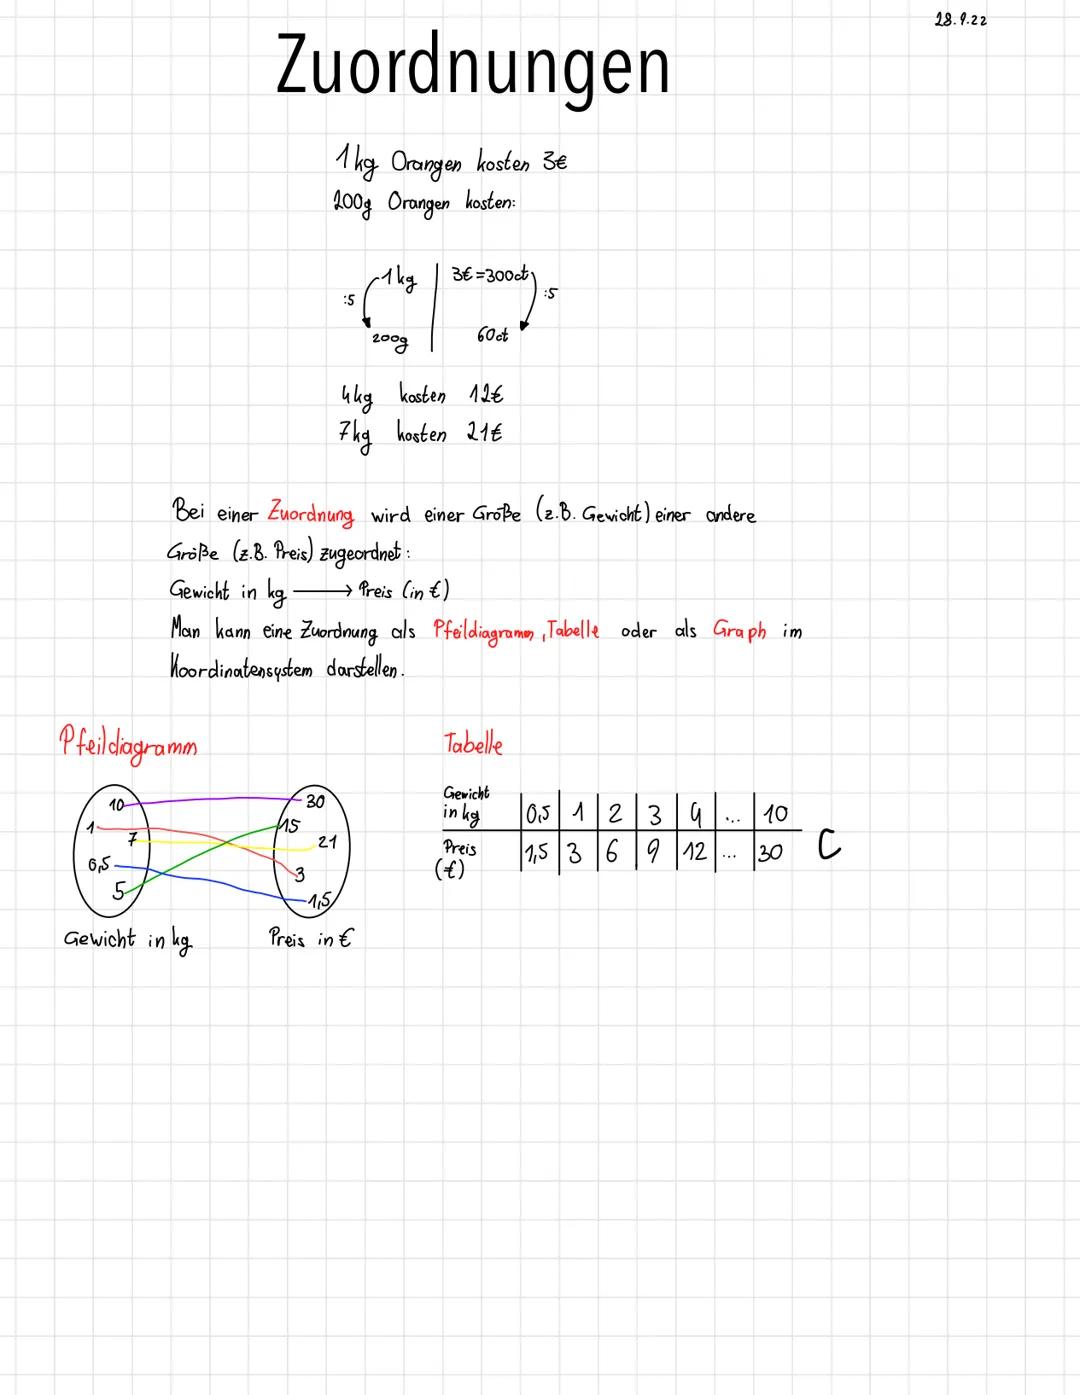 28.9.22
Zuordnungen
1kg Orangen kosten 3€
200g Orangen kosten:
1kg 3€=300ct
:5 :5
200g 60ct
4kg kosten 12€
7kg kosten 21€
Bei einer Zuordnung wird einer Größe (z.B. Gewicht) einer andere
Größe (z.B. Preis) zugeordnet:
Gewicht in kg → Preis (in €)
Man kann eine Zuordnung als Pfeildiagramm, Tabelle oder als Graph im
Koordinatensystem darstellen.
Pfeildiagramm
10 30
1 15
7 21
0,5 3
5 1,5
Gewicht in kg Preis in €
Tabelle
Gewicht
in kg 0,5 1 2 3 4 ... 10
Preis 1,5 3 6 9 12 ... 30 C
(€)